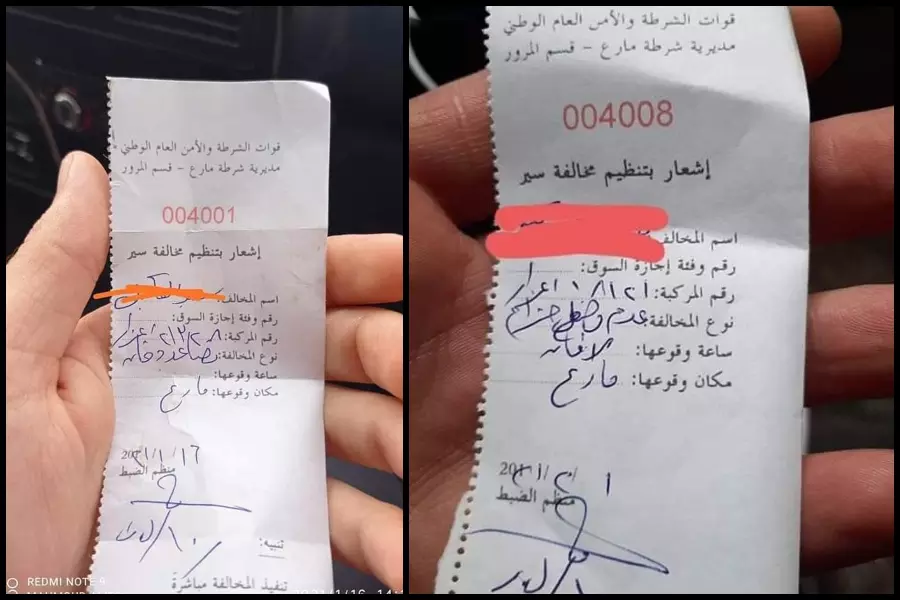 قوات الشرطة والأمن العام الوطني
مديرية شرطة مارع - قسم المرور
004001
إشعار بتنظيم مخالفة سير
اسم المخالف
رقم وفئة إجازة السوق:
رقم المركبة: ٢١٣٢٠٨ اعزاز
نوع المخالفة: تصاعد دخانه
ساعة وقوعها:
مكان وقوعها: مارع
منظم الضبط
تنبيه:
تنفيذ المخالفة مباشرة
REDMI NOTE 9
قوات الشرطة والأمن العام الوطني
مديرية شرطة مارع - قسم المرور
004008
إشعار بتنظيم مخالفة سير
اسم المخالف
رقم وفئة إجازة السوق:
رقم المركبة: اعزاز
نوع المخالفة: عدم وضع حزام
الامان
ساعة وقوعها:
مكان وقوعها: مارع
منظم الضبط